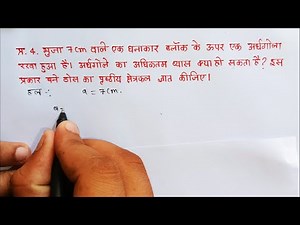 प्र. 4. भुजा 7cm वाले एक घनाकार ब्लॉक के ऊपर एक अर्धगोला
रखा हुआ है। अर्धगोले का अधिकतम व्यास क्या हो सकता है? इस
प्रकार बने ठोस का पृष्ठीय क्षेत्रफल ज्ञात कीजिए।
हल :- a = 7cm.
a=